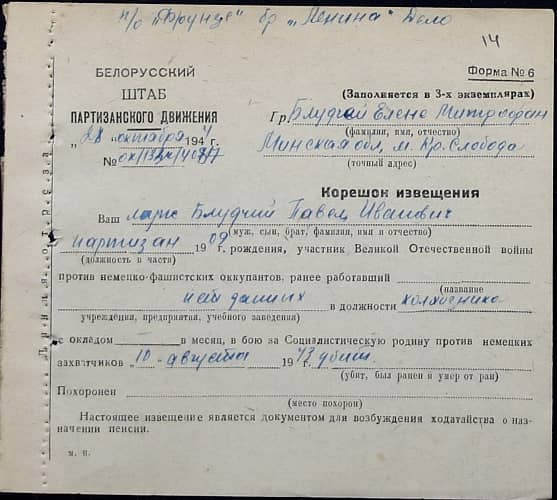 п/о "Фрунзе" бр "Ленина" Дело
14
БЕЛОРУССКИЙ
ШТАБ
ПАРТИЗАНСКОГО ДВИЖЕНИЯ
"28" октября 1944
№
Форма № 6
(Заполняется в 3-х экземплярах)
Гр. Блудчей Елене Митрофан
(фамилия, имя, отчество)
Минская обл, м. Кр. Слобода
(точный адрес)
Корешок извещения
Ваш муж Блудчий Павел Иванович
(муж, сын, брат, фамилия, имя и отчество)
партизан 1909 г. рождения, участник Великой Отечественной войны
(должность в части)
против немецко-фашистских оккупантов, ранее работавший
(название
нет данных в должности колхозника
учреждения, предприятия, учебного заведения)
с окладом в месяц, в бою за Социалистическую родину против немецких
захватчиков "10" августа 1943 убит.
(убит, был ранен и умер от ран)
Похоронен
(место похорон)
Настоящее извещение является документом для возбуждения ходатайства о наз-
начении пенсии.
м. п.
Линия отреза